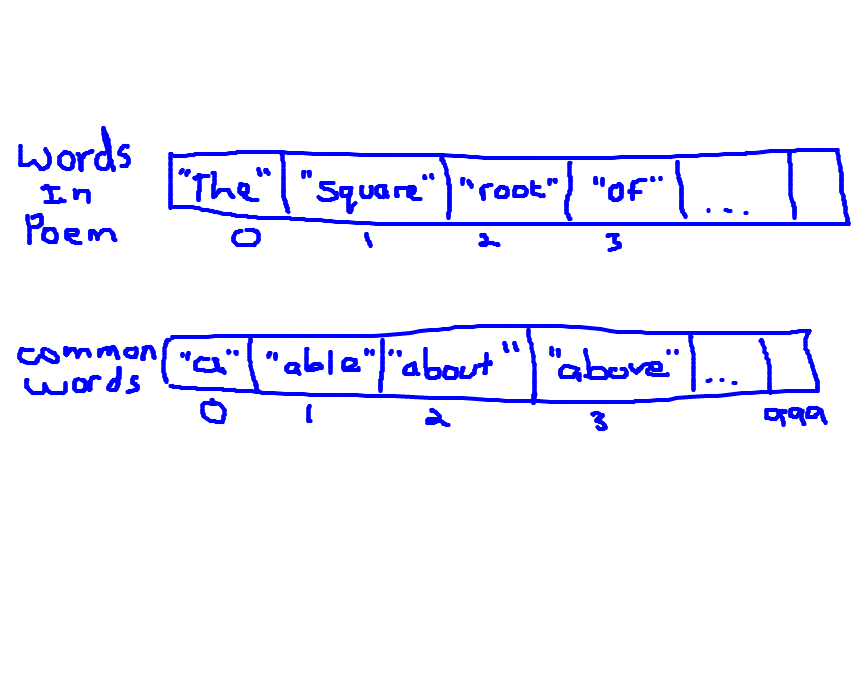 Words
In
Poem
"The" "Square" "root" "of" ...
0 1 2 3
common
words
"a" "able" "about" "above" ...
0 1 2 3 999